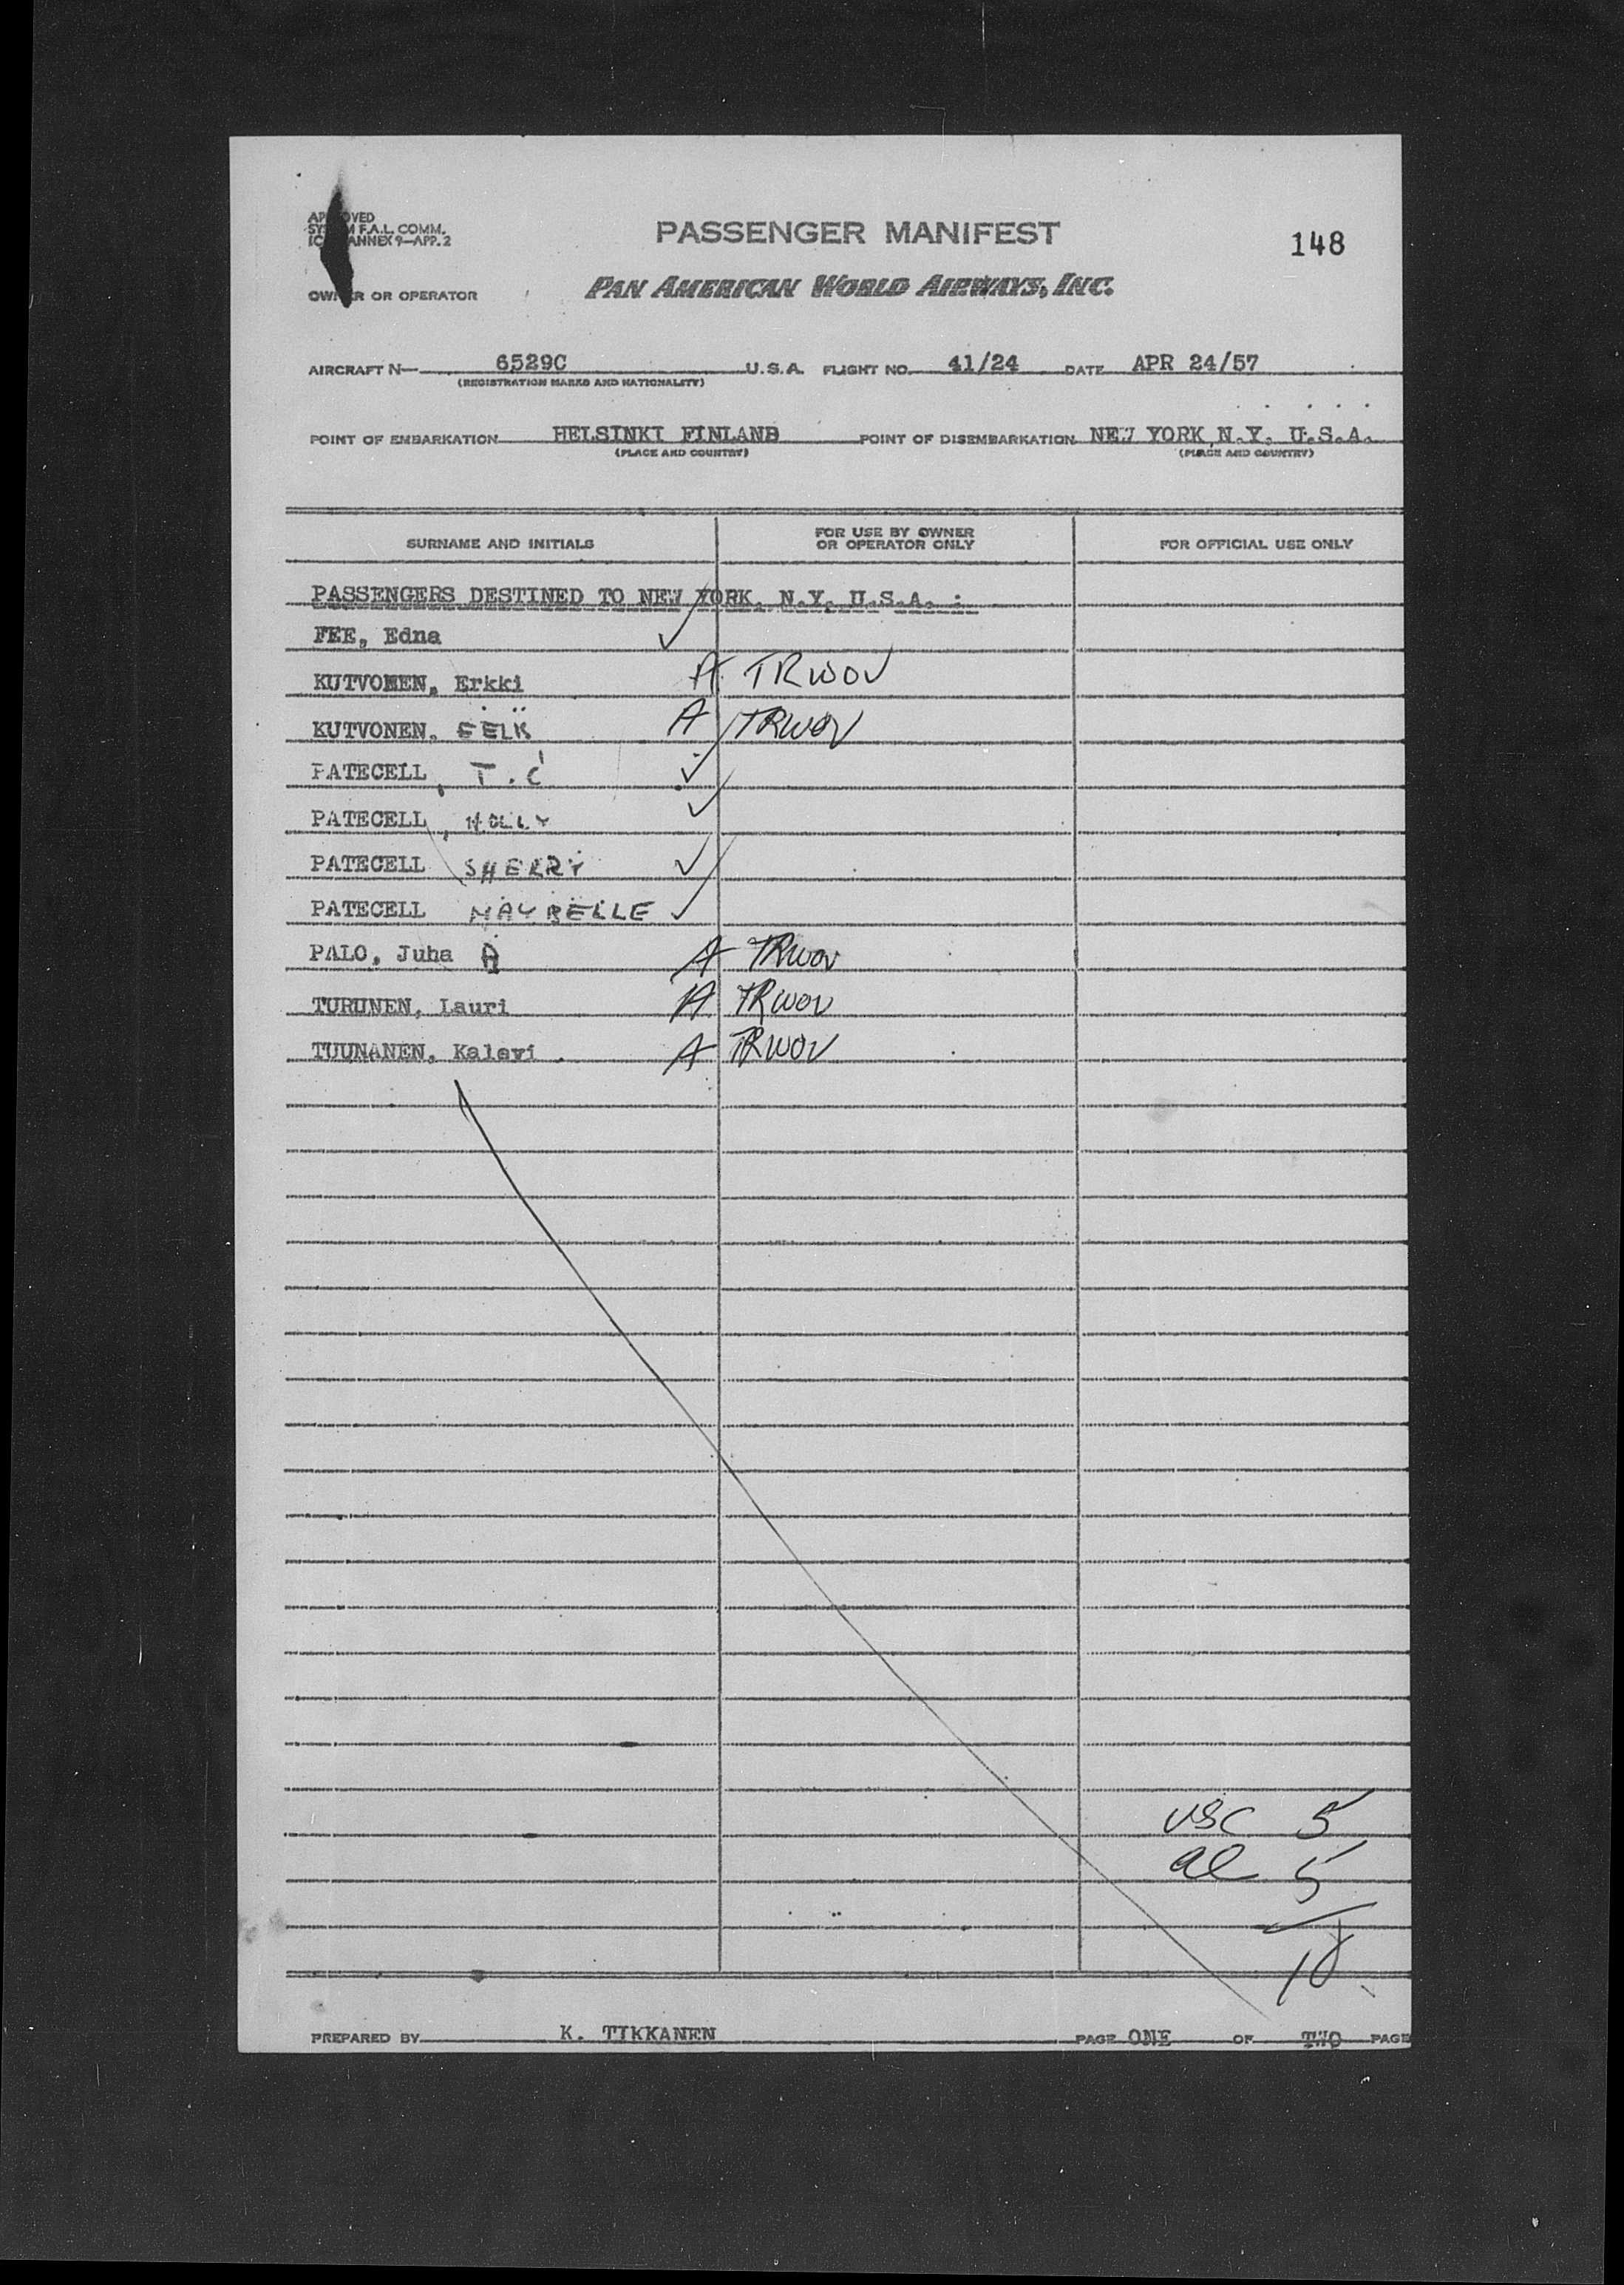 148
PASSENGER MANIFEST
PAN AMERICAN WORLD AIRWAYS, INC.
F.A.L. COMM.
ANNEX 9—APP. 2
OWNER OR OPERATOR
AIRCRAFT N— 6529C U.S.A. FLIGHT NO. 41/24 DATE APR 24/57
(REGISTRATION MARKS AND NATIONALITY)
POINT OF EMBARKATION HELSINKI FINLAND POINT OF DISEMBARKATION NEW YORK, N.Y. U.S.A.
(PLACE AND COUNTRY) (PLACE AND COUNTRY)
SURNAME AND INITIALS FOR USE BY OWNER OR OPERATOR ONLY FOR OFFICIAL USE ONLY
PASSENGERS DESTINED TO NEW YORK, N.Y. U.S.A. :
FEE, Edna ✓
KUTVONEN, Erkki A TRWOV
KUTVONEN, A TRWOV
PATECELL, T.C ✓
PATECELL, ✓
PATECELL SHERRY ✓
PATECELL MAYBELLE ✓
PALO, Juha A A TRWOV
TURUNEN, Lauri A TRWOV
TUUNANEN, Kalevi A TRWOV
USC 5
al 5
10
PREPARED BY K. TIKKANEN PAGE ONE OF TWO PAGE